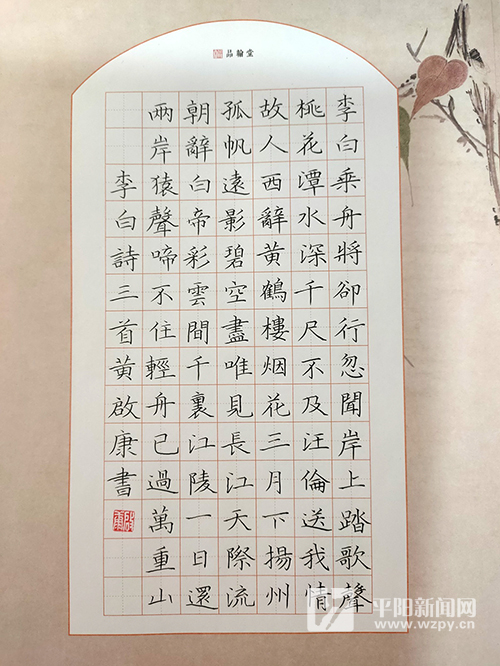 品翰堂
李白乘舟將卻行忽聞岸上踏歌聲
桃花潭水深千尺不及汪倫送我情
故人西辭黃鶴樓烟花三月下揚州
孤帆遠影碧空盡唯見長江天際流
朝辭白帝彩雲間千裏江陵一日還
兩岸猿聲啼不住輕舟已過萬重山
李白詩三首黃啟康書
平阳新闻网
www.wzpy.cn